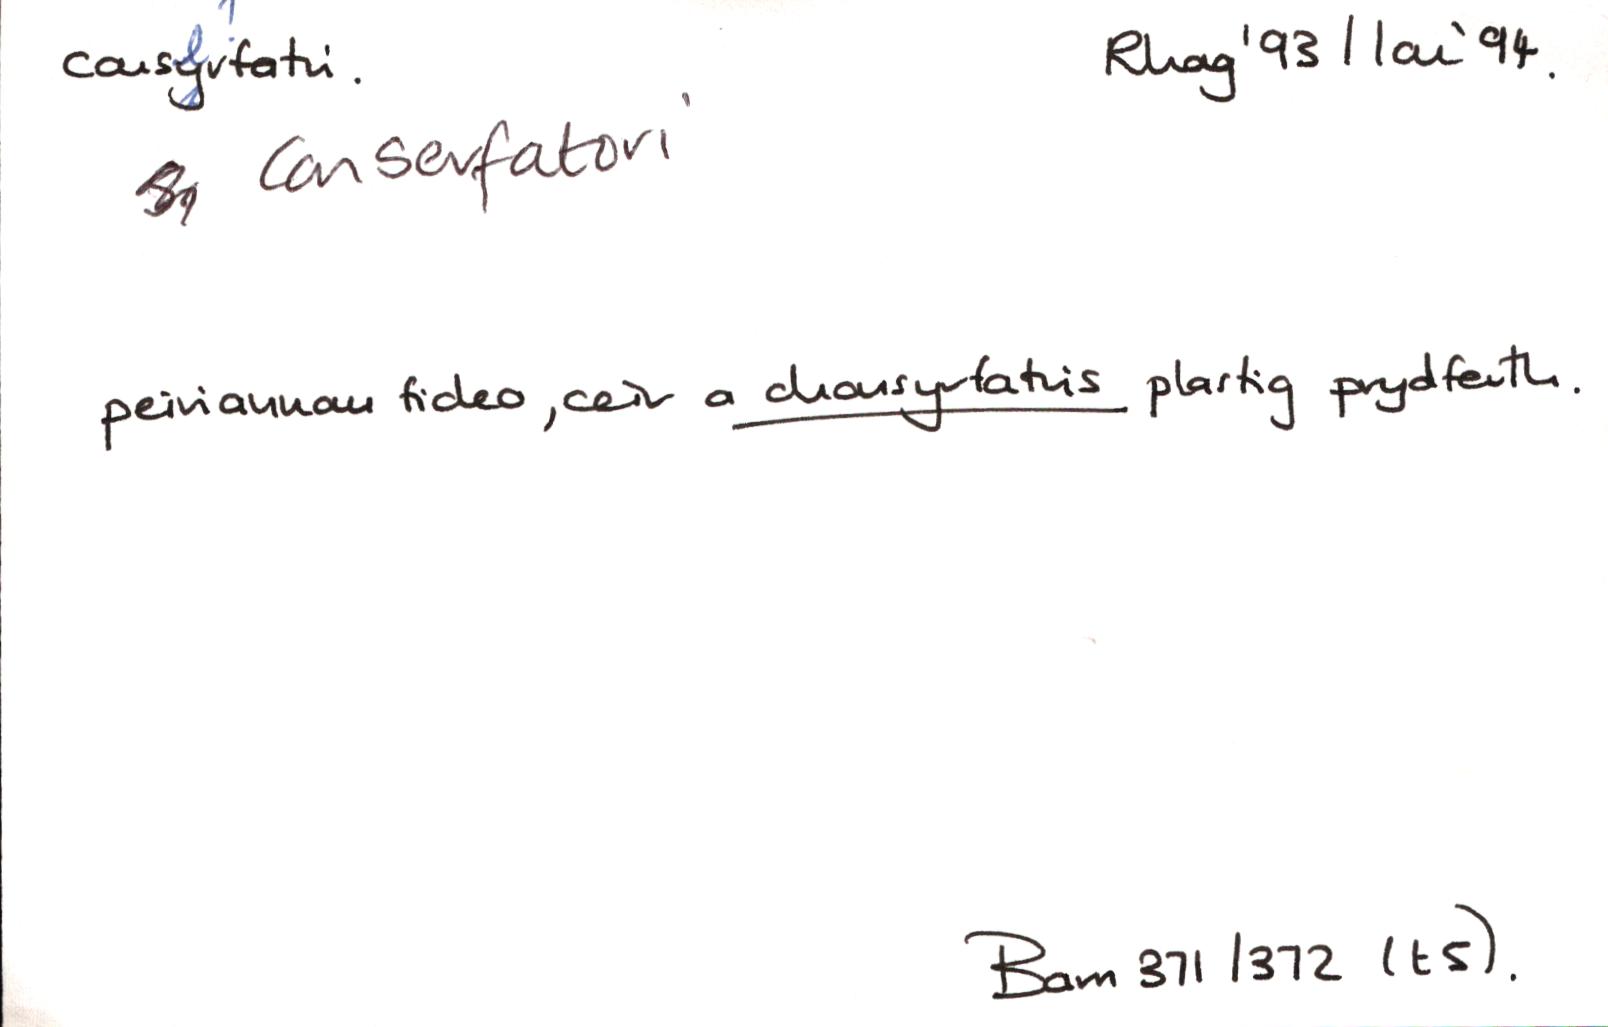 consyrfatri. Rhag '93 / Ion '94.
Conserfatori
peiriannau fideo, ceir a chonsyrfatris plastig prydferth.
Barn 371/372 (t5).